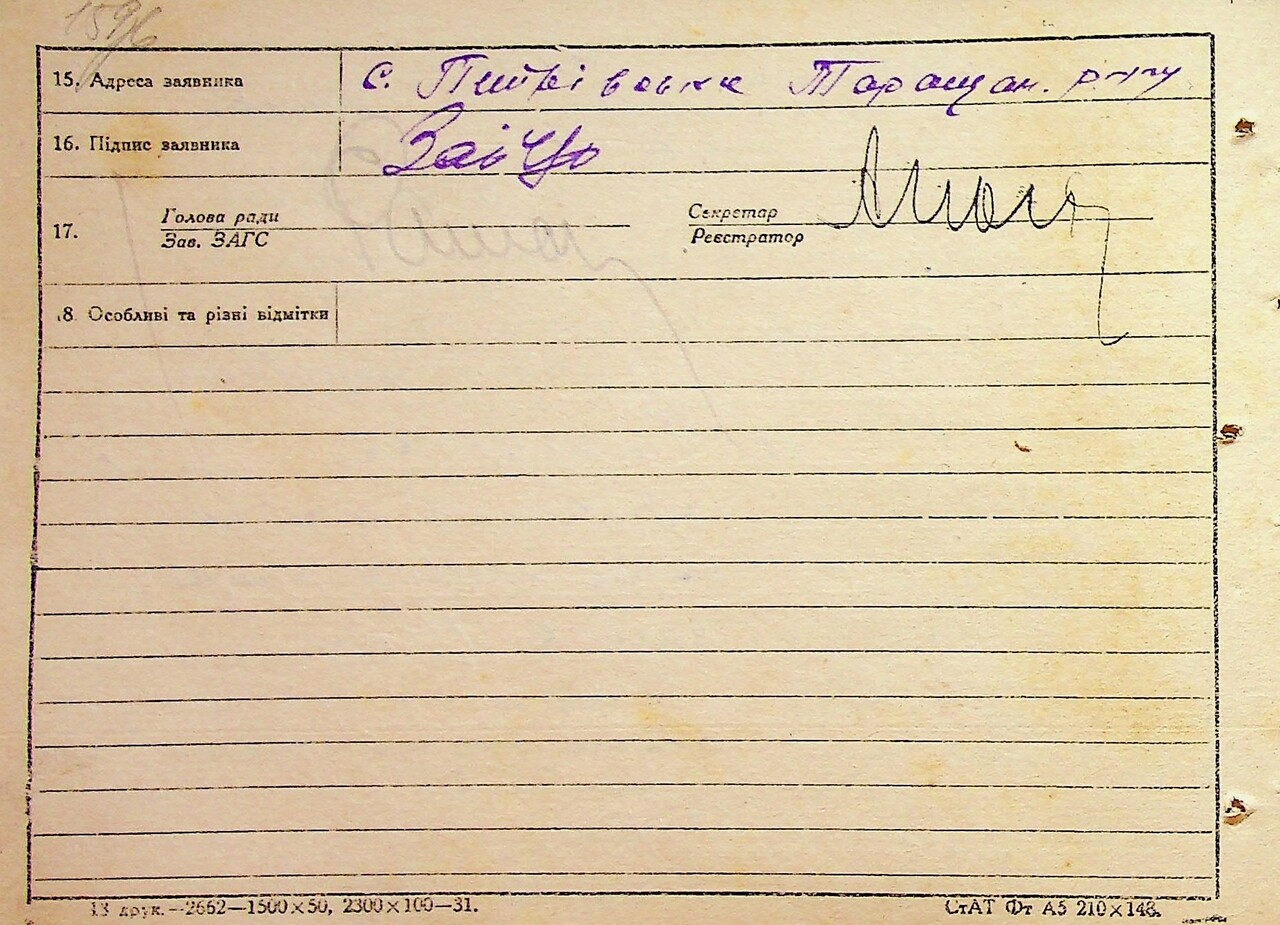 159б
15. Адреса заявника с. Петрівська Таращан. р-ну
16. Підпис заявника
17. Голова ради
Зав. ЗАГС
Секретар
Реєстратор
18. Особливі та різні відмітки
13 друк.—2662—1500×50, 2300×100—31.
СтАТ Фт А5 210×148.